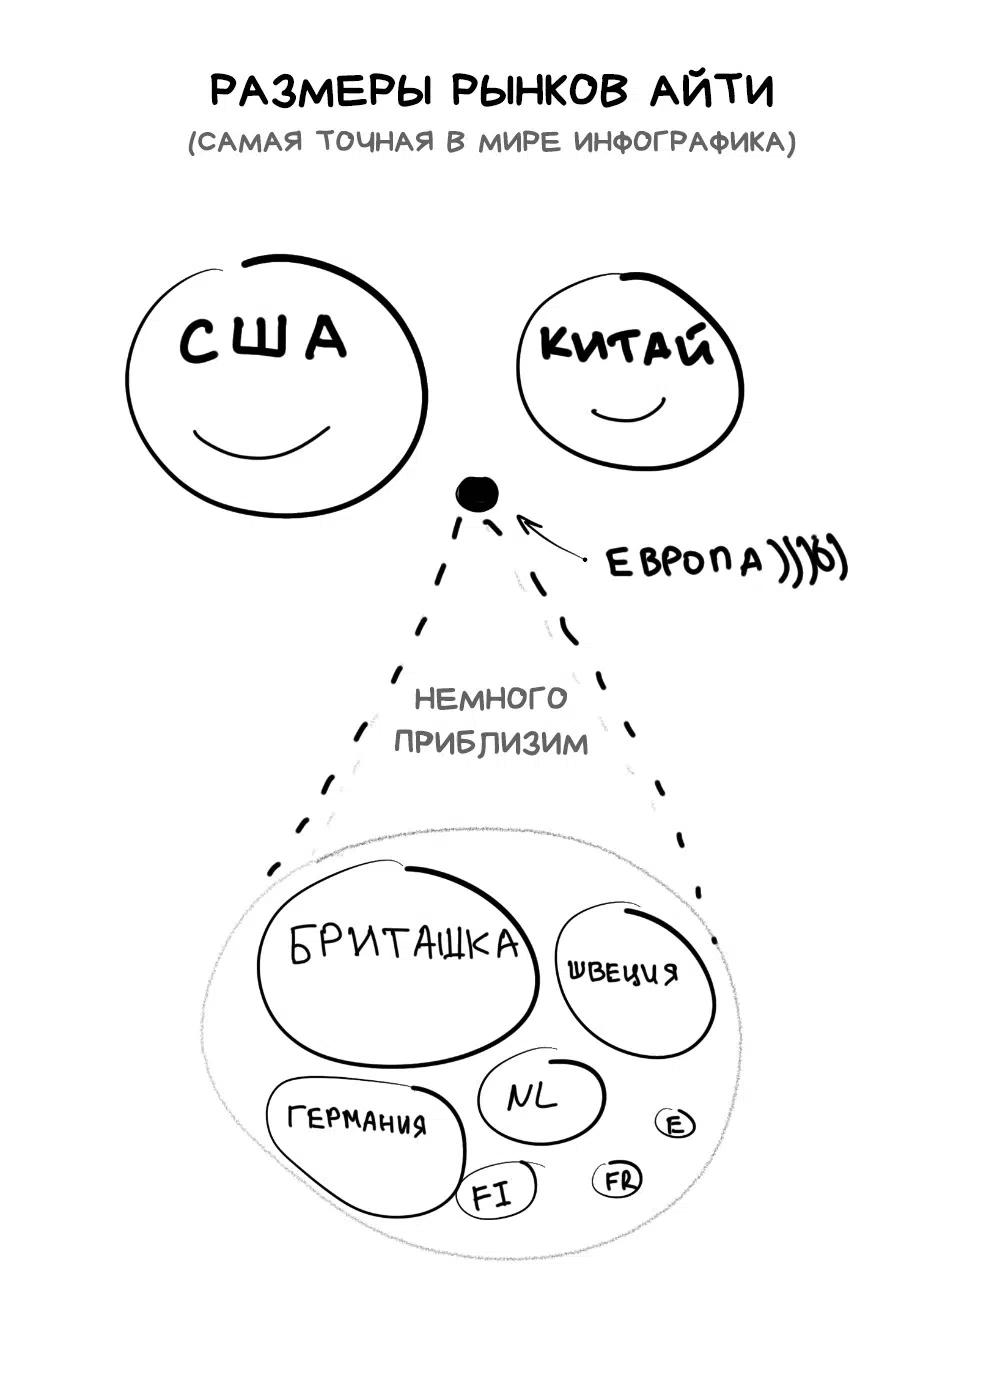 РАЗМЕРЫ РЫНКОВ АЙТИ
(САМАЯ ТОЧНАЯ В МИРЕ ИНФОГРАФИКА)
США
КИТАЙ
ЕВРОПА)))0)
НЕМНОГО
ПРИБЛИЗИМ
БРИТАШКА
ШВЕЦИЯ
NL
ГЕРМАНИЯ
E
FR
FI